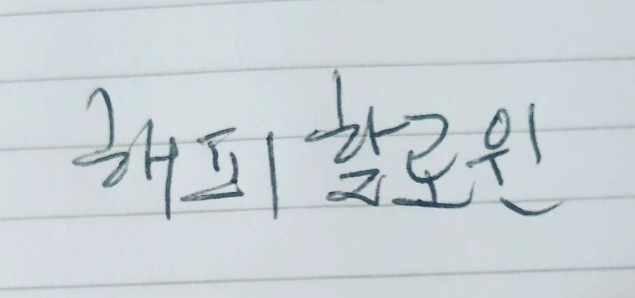 해피 할로윈